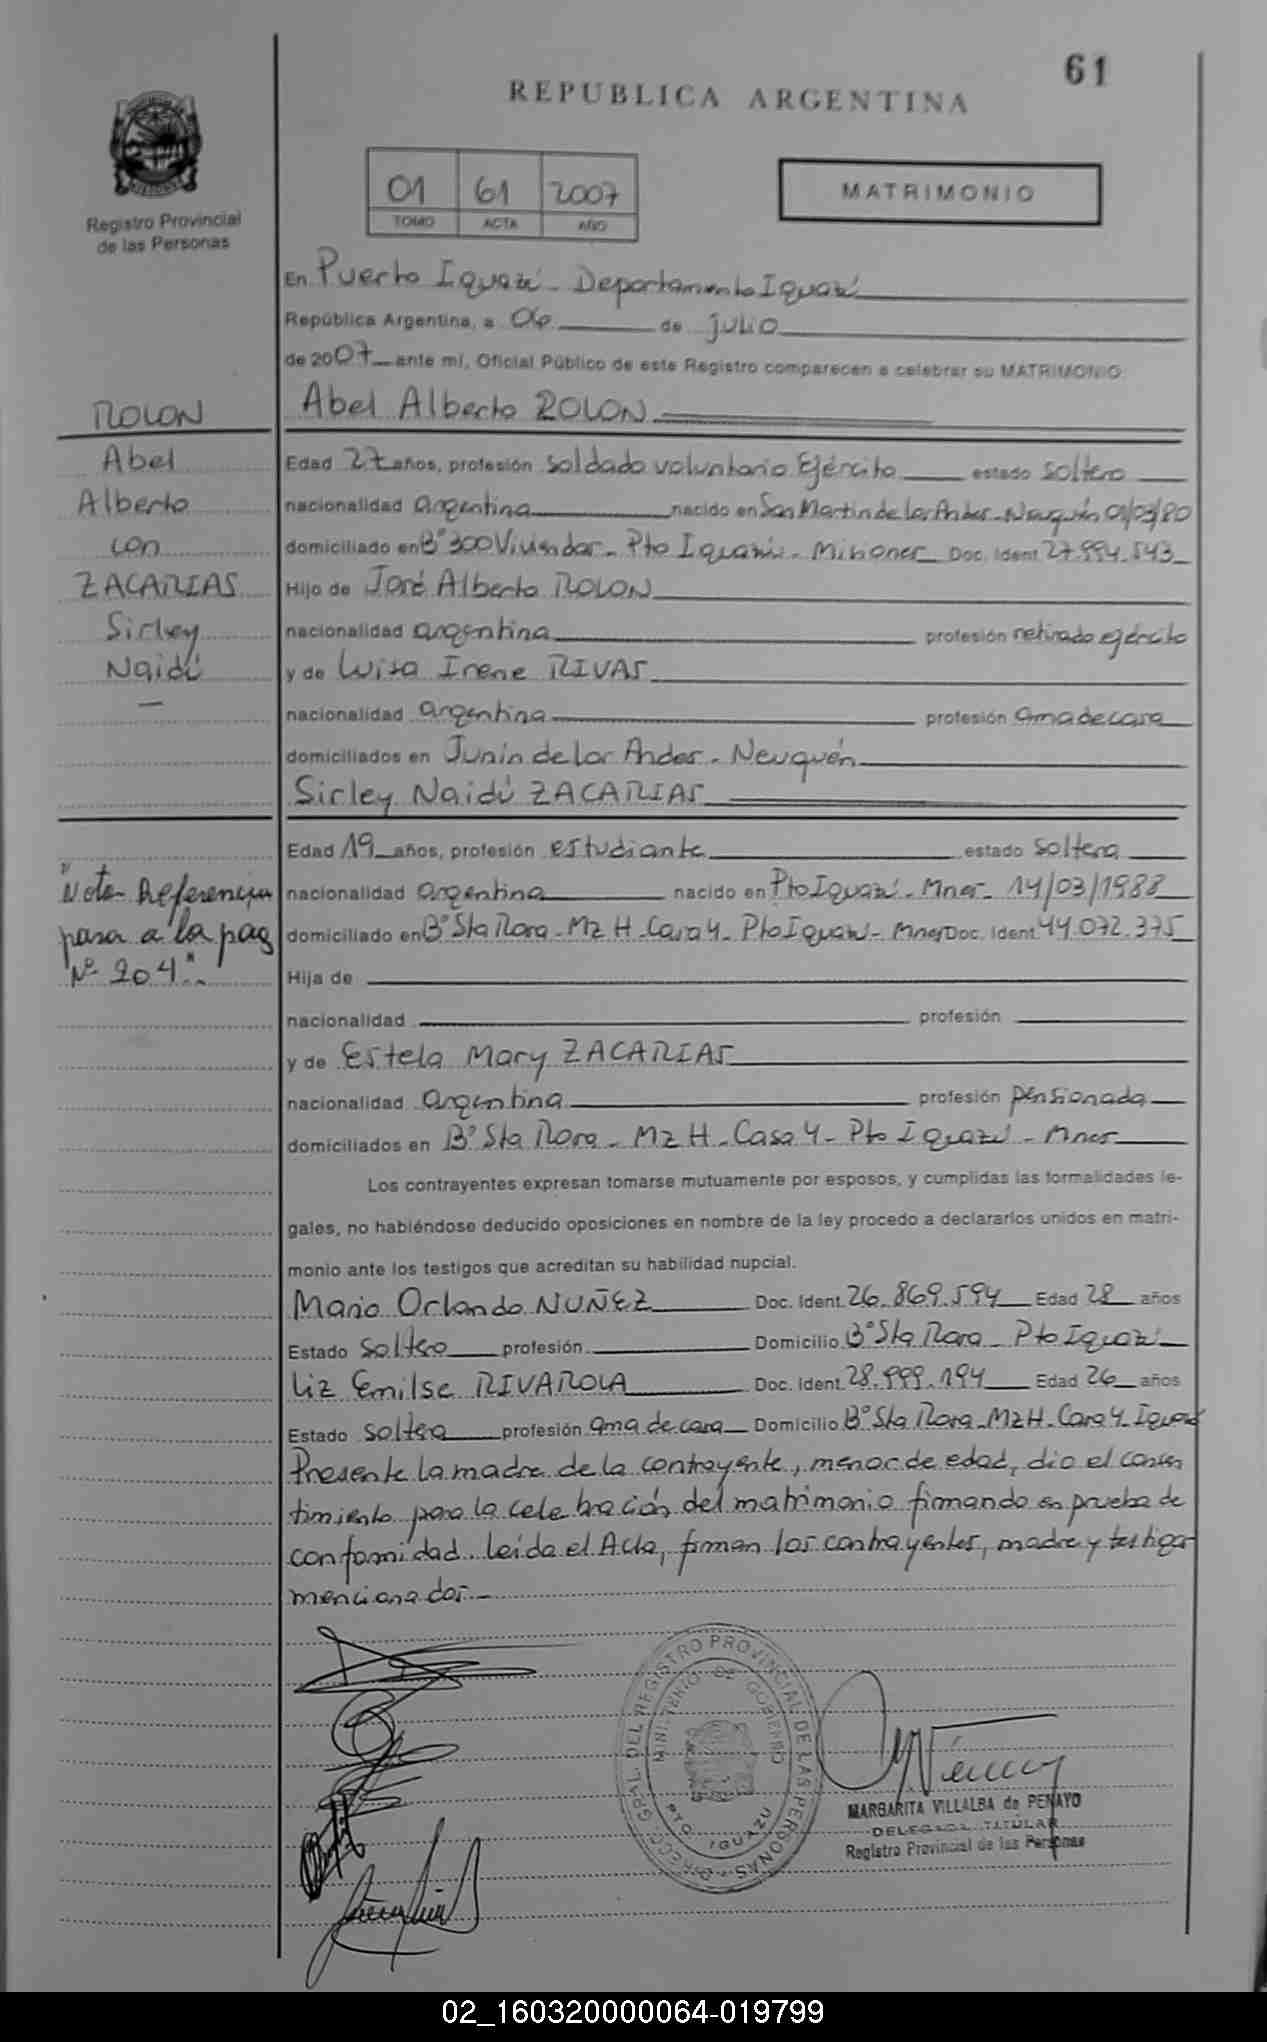 61
REPUBLICA ARGENTINA
MATRIMONIO
01 61 2007
TOMO ACTA AÑO
Registro Provincial
de las Personas
En Puerto Iguazú - Departamento Iguazú
República Argentina, a 06 de julio
de 2007 ante mí, Oficial Público de este Registro comparecen a celebrar su MATRIMONIO
Abel Alberto ROLON
ROLON
Abel
Alberto
con
ZACARIAS
Sirley
Naidú
Edad 27 años, profesión soldado voluntario Ejército estado soltero
nacionalidad argentina nacido en San Martin de los Andes - Neuquén 01/03/80
domiciliado en B° 300 Viviendas - Pto Iguazú - Misiones Doc. Ident. 27.994.543
Hijo de José Alberto ROLON
nacionalidad argentina profesión retirado ejército
y de Luisa Irene RIVAS
nacionalidad argentina profesión ama de casa
domiciliados en Junín de los Andes - Neuquén
Sirley Naidú ZACARIAS
Edad 19 años, profesión estudiante estado soltera
nacionalidad argentina nacido en Pto Iguazú - Mnes - 14/03/1988
domiciliado en B° Sta Rosa - Mz H - Casa 4 - Pto Iguazú - Mnes Doc. Ident. 44.072.375
"Nota Referencia
pasa a la pag
N° 204"
Hija de
nacionalidad profesión
y de Estela Mary ZACARIAS
nacionalidad argentina profesión pensionada
domiciliados en B° Sta Rosa - Mz H - Casa 4 - Pto Iguazú - Mnes
Los contrayentes expresan tomarse mutuamente por esposos, y cumplidas las formalidades le-
gales, no habiéndose deducido oposiciones en nombre de la ley procedo a declararlos unidos en matri-
monio ante los testigos que acreditan su habilidad nupcial.
Mario Orlando NUÑEZ Doc. Ident. 26.869.594 Edad 28 años
Estado soltero profesión Domicilio B° Sta Rosa - Pto Iguazú
Liz Emilse RIVAROLA Doc. Ident. 28.999.194 Edad 26 años
Estado soltera profesión ama de casa Domicilio B° Sta Rosa - Mz H - Casa 4 - Iguazú
Presente la madre de la contrayente, menor de edad, dio el consen
timiento para la celebración del matrimonio firmando en prueba de
conformidad. Leída el Acta, firman los contrayentes, madre y testigos
mencionados.-
DIRECC. GRAL. DEL REGISTRO PROVINCIAL DE LAS PERSONAS
MINISTERIO DE GOBIERNO
PTO IGUAZU
MARGARITA VILLALBA de PENAYO
DELEGADA TITULAR
Registro Provincial de las Personas
02_160320000064-019799